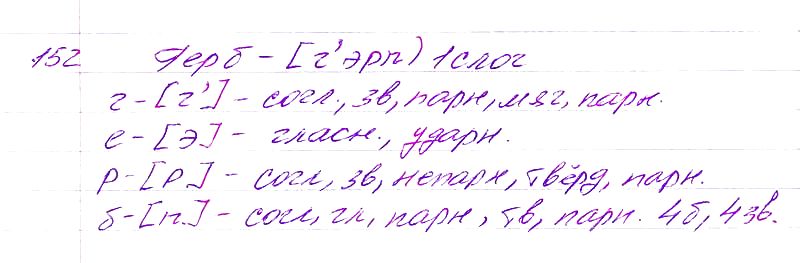 152 Герб - [г'эрп) 1слог
г-[г'] - согл., зв, парн, мяг, парн.
е-[э] - гласн., ударн.
р-[р] - согл, зв, непарн, твёрд, парн.
б-[п.] - согл, гл, парн, тв, парн. 4б, 4зв.